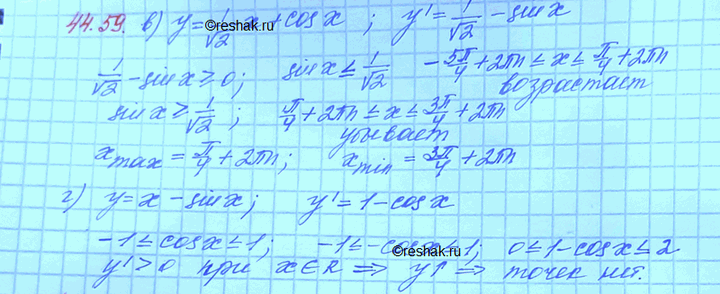 44.59. в) y = 1/√2 x + cos x ; y' = 1/√2 - sin x
1/√2 - sin x ≥ 0; sin x ≤ 1/√2 - 5π/4 + 2πn ≤ x ≤ π/4 + 2πn
возрастает
sin x ≥ 1/√2 ; π/4 + 2πn ≤ x ≤ 3π/4 + 2πn
убывает
x max = π/4 + 2πn; x min = 3π/4 + 2πn
©www.kor.ru
г) y = x - sin x; y' = 1 - cos x
-1 ≤ cos x ≤ 1; -1 ≤ -cos x ≤ 1; 0 ≤ 1 - cos x ≤ 2
©www.kor.ru
y' > 0 при x ∈ R ⇒ y↑ ⇒ точек нет.